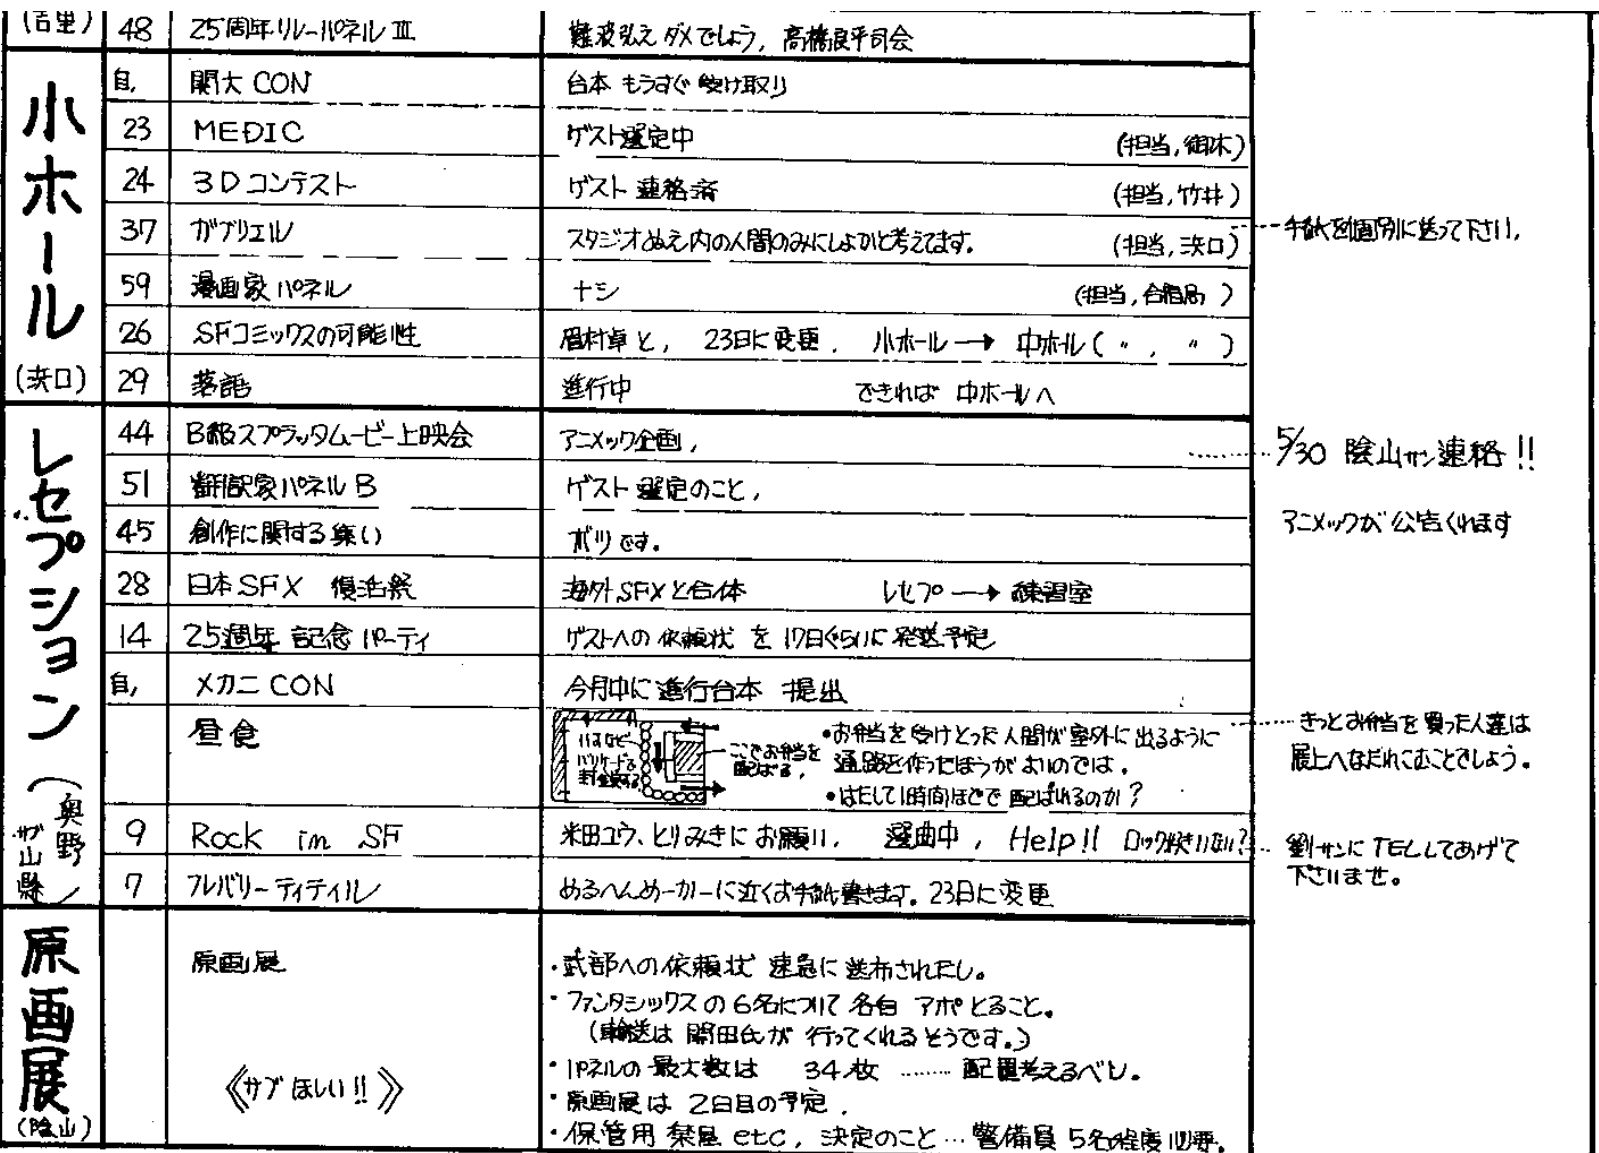 (吉里) 48 25周年リレーパネルⅢ 難波弘之ダメでしょう, 高橋良平司会
小ホール
(浜口)
自, 関大CON 台本 もうすぐ受け取り
23 MEDIC ゲスト選定中 (担当, 御木)
24 3Dコンテスト ゲスト連絡済 (担当, 竹井)
37 ガブリエル スタジオぬえ内の人間のみにしよかと考えてます。 (担当, 浜口) 手紙を個別に送って下さい,
59 漫画家パネル ナシ (担当, )
26 SFコミックスの可能性 眉村卓と, 23日に変更. 小ホール→中ホール( 〃 , 〃 )
29 落語 進行中 できれば 中ホールへ
レセプション
(奥野)
サブ山縣
44 B級スプラッタムービー上映会 アニメック企画, 5/30 陰山サン連絡!!
51 翻訳家パネルB ゲスト選定のこと,
アニメックが公告くれます
45 創作に関する集い ボツです.
28 日本SFX 復活祭 海外SFXと合体 レセプ→練習室
14 25周年記念パーティ ゲストへの依頼状を17日ぐらいに発送予定
自, メカニCON 今月中に進行台本 提出
昼食
いすなどで
バリケード
封鎖する
ここでお弁当を
配ばる,
•お弁当を受けとった人間が室外に出るように
通路を作ったほうがよいのでは.
•はたして1時間ほどで配ばれるのか?
きっとお弁当を買った人達は
展上へなだれこむことでしょう.
9 Rock in SF 米田ユウ、とりみきにお願い. 選曲中, Help!! ロック好きいない?
劉サンにTELしてあげて
下さいませ。
7 フレバリーティティル めるへんめーかーに近くお手紙書きます. 23日に変更
原画展
(陰山)
原画展
《サブほしい!!》
・武部への依頼状 速急に送布されたし。
・ファンタシックスの6名について各自 アポとること。
(輸送は開田氏が行ってくれるそうです。)
・パネルの最大数は 34枚 ……… 配置考えるべし.
・原画展は2日目の予定.
・保管用 etc, 決定のこと…警備員5名程度必要.